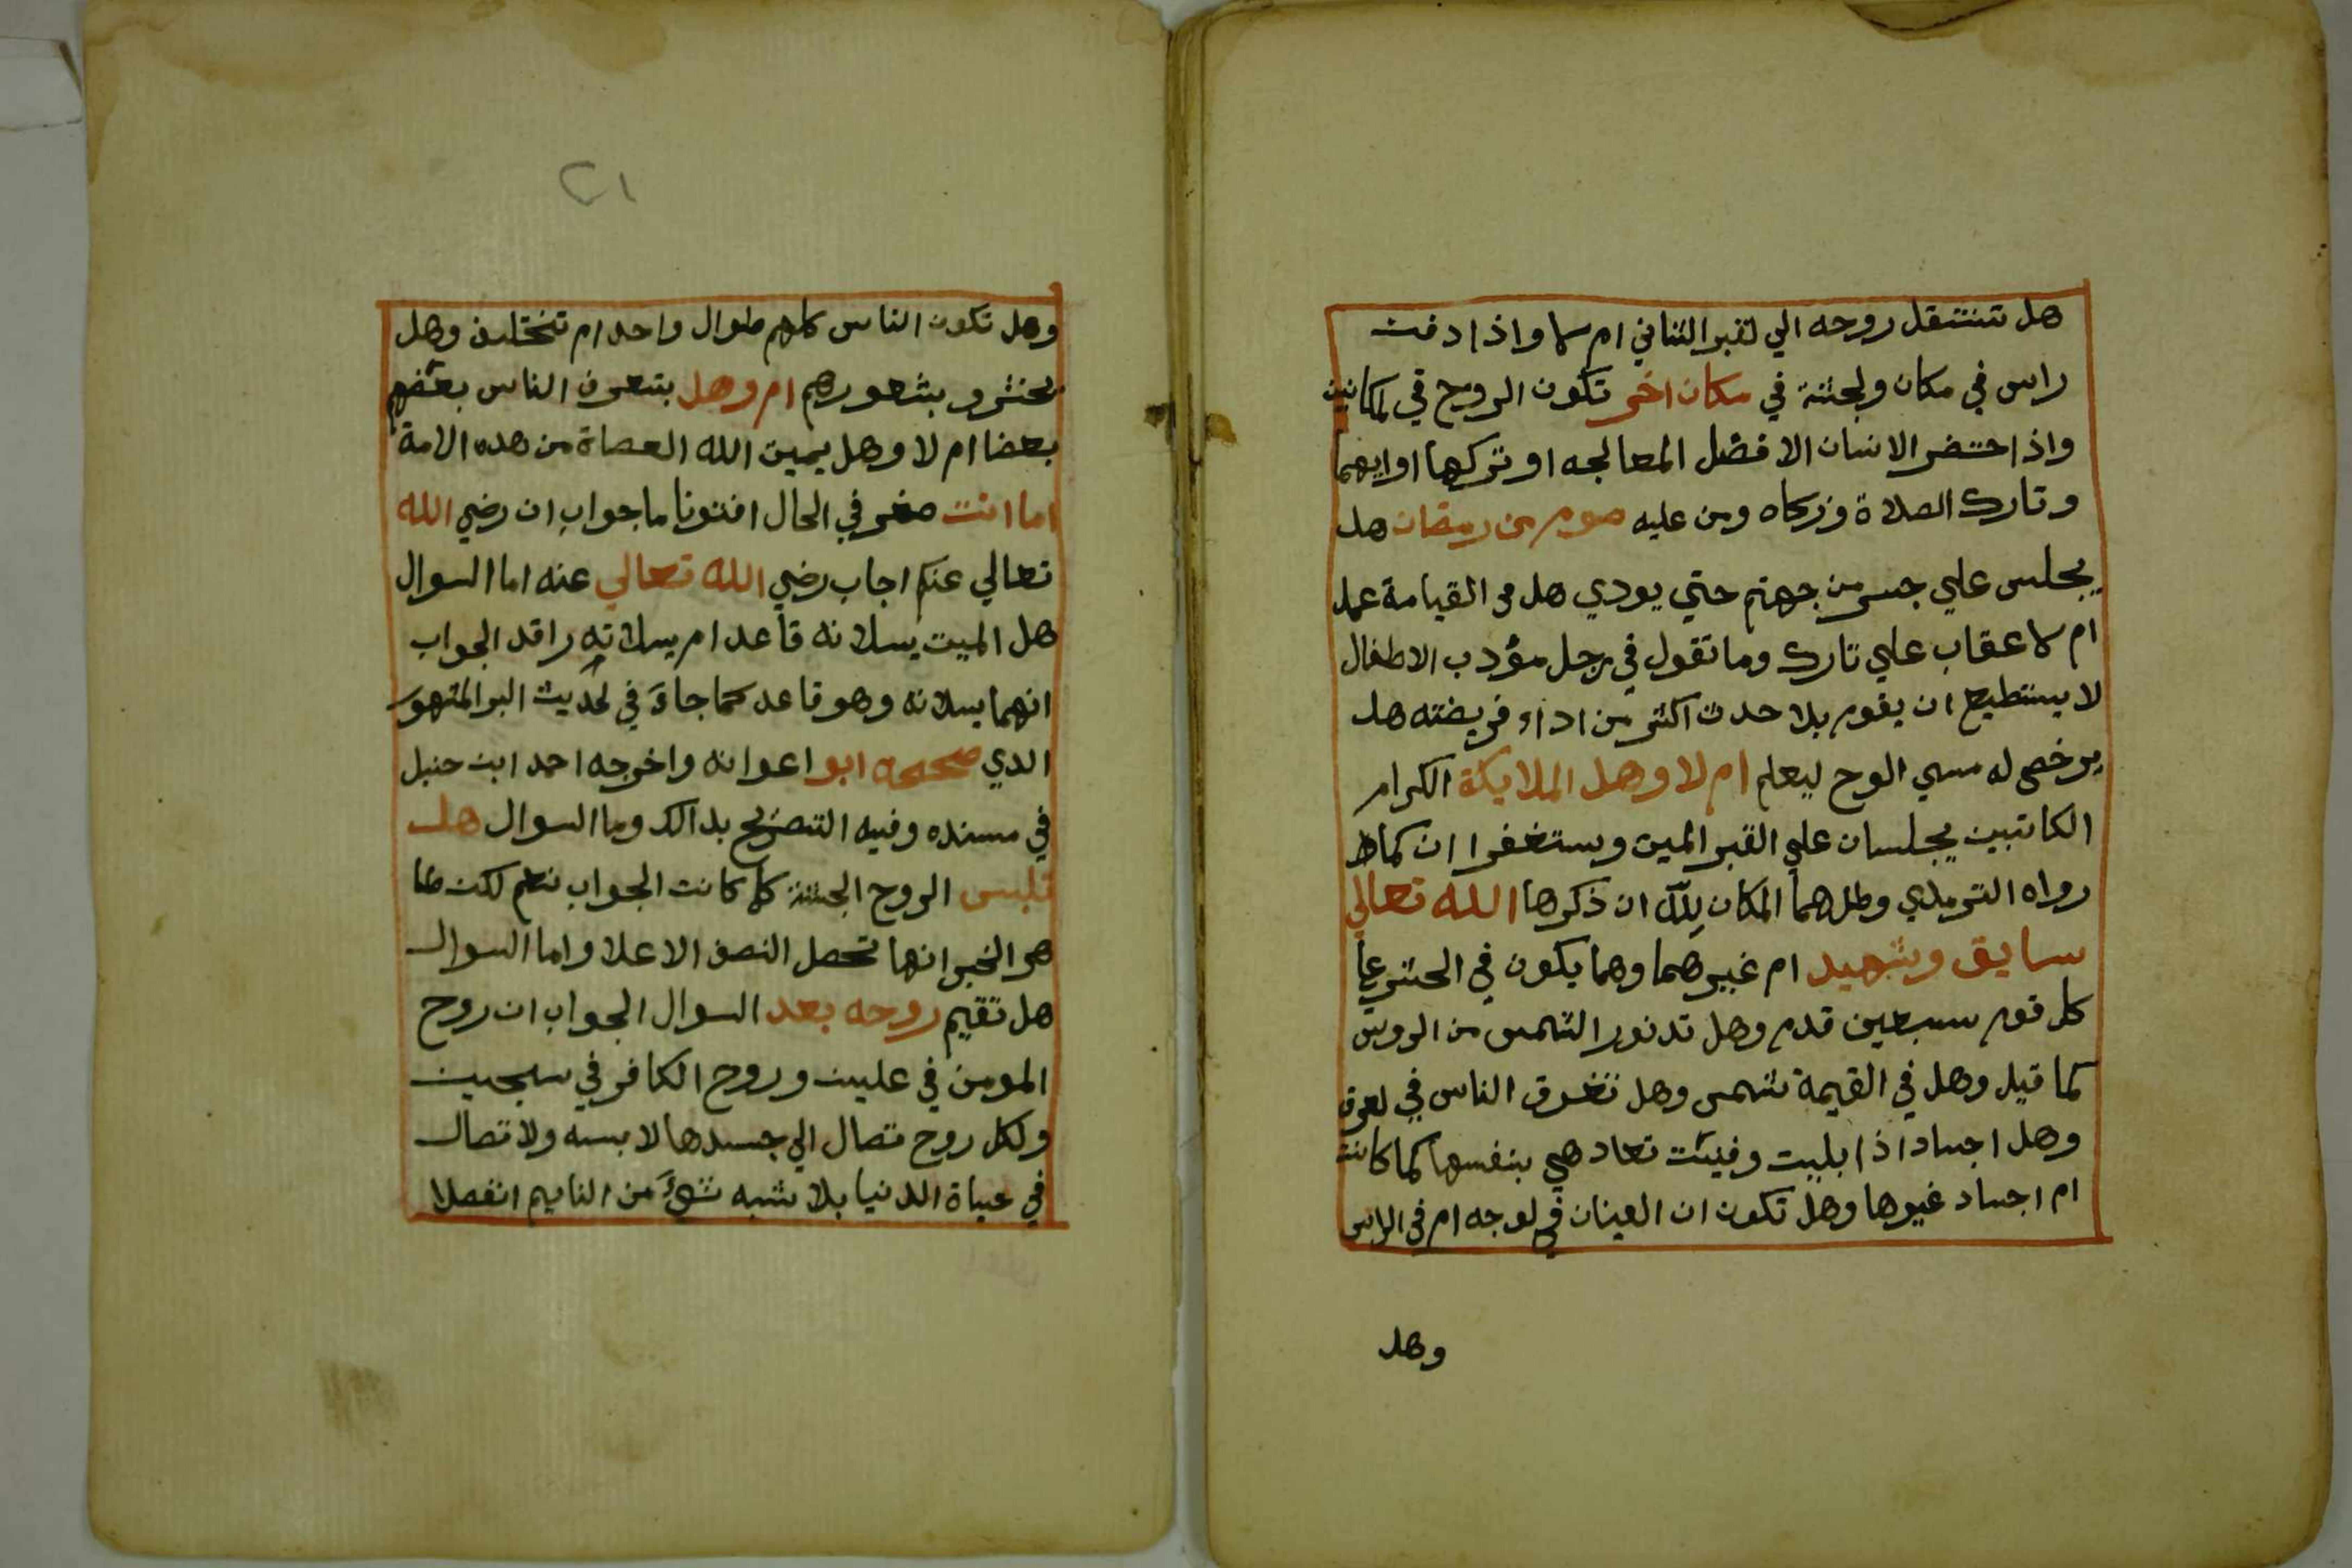 هل تنتقل روحه الي لقبر الثاني ام لا واذا دفنت
راس في مكان ولجثة في مكان اخر تكون الروح في لمكانين
واذا حتضر الانسان الافضل المعالجه او تركها او ايهما
وتارك الصلاة وزكاه ومن عليه صوم من رمضان هل
يجلس علي جسر من جهنم حتي يودي هل في القيامة عمل
ام لا عقاب علي تارك وما تقول في رجل مؤدب الاطفال
لا يستطيع ان يقوم بلا حدث اكثر من اداء فريضته هل
يرخص له مسي الوح ليعلم ام لا وهل الملايكة الكرام
الكاتبين يجلسان علي القبر الميت ويستغفرا ان كما
رواه الترمذي وطل هما المكان لله ان ذكرها الله تعالي
سايق وشهيد ام غيرهما وهما يكون في الحشر
كل قوم سبعين قدم وهل تدنور الشمس من الروس
كما قيل وهل في القيمة شمس وهل تغرق الناس في لعرق
وهل اجساد اذا بليت وفنيت تعاد هي بنفسها كما كانت
ام اجساد غيرها وهل تكون ان العينان في لوجه ام في الراس
وهل
٢١
وهل تكون الناس كلهم طوال واحد ام تختلف وهل
تحشر و بشعورهم ام وهل بتعرف الناس بعضهم
بعضا ام لا وهل يميت الله العصاة من هده الامة
اما انت في الحال افتونا ما جواب ان رضي الله
تعالي عنكم اجاب رضي الله تعالي عنه اما السوال
هل الميت يسلانه قاعد ام يسلاته راقد الجواب
انهما يسلانه وهو قاعد كما جاء في لحديث البر المشهور
الدي صححه ابو اعوانه واخرجه احمد ابن حنبل
في مسنده وفيه التصريح بدالك وما السوال هل
تلبس الروح الجثة كما كانت الجواب نعم لكن ظا
هر الخبر انها تحصل النصف الاعلا واما السوال
هل تقيم روحه بعد السوال الجواب ان روح
المومن في عليين وروح الكافر في سجين
ولكل روح تصال الي جسدها لا بسه ولا تصال
في حياة الدنيا بلا شبه شيء من النايم انفصلا